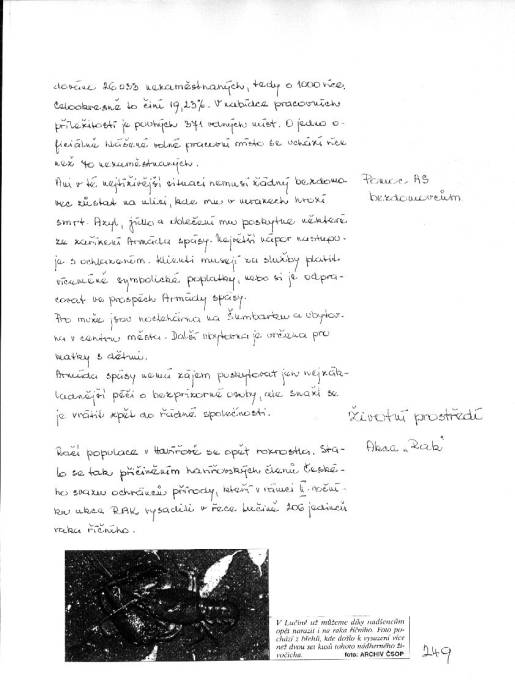 dosáhne 26 033 nezaměstnaných, tedy o 1000 více.
Celookresně to činí 19,23%. V nabídce pracovních
příležitostí je pouhých 371 volných míst. O jedno o-
ficiálně hlášené volné pracovní místo se uchází více
než 70 nezaměstnaných.
Ani v té nejtíživější situaci nemusí žádný bezdomo-
vec zůstat na ulici, kde mu v mrazech hrozí
smrt. Azyl, jídlo a oblečení mu poskytne některé
ze zařízení Armády spásy. Největší nápor nastupu-
je s ochlazením. Klienti musejí za služby platit
víceméně symbolické poplatky, nebo si je odpra-
covat ve prospěch Armády spásy.
Pro muže jsou noclehárna na Šumbarku a ubytov-
na v centru města. Další ubytovna je určena pro
matky s dětmi.
Armáda spásy nemá zájem poskytovat jen nejzák-
ladnější péči o bezprizorné osoby, ale snaží se
je vrátit zpět do řádné společnosti.
Pomoc AS
bezdomovcům
Životní prostředí
Akce „Rak"
Račí populace v Havířově se opět rozrostla. Sta-
lo se tak přičiněním havířovských členů České-
ho svazu ochránců přírody, kteří v rámci II. roční-
ku akce RAK vysadili v řece Lučině 206 jedinců
raka říčního.
V Lučině už můžeme díky nadšencům
opět narazit i na raka říčního. Foto po-
chází z břehů, kde došlo k vysazení více
než dvou set kusů tohoto nádherného ži-
vočicha.
foto: ARCHIV ČSOP
249